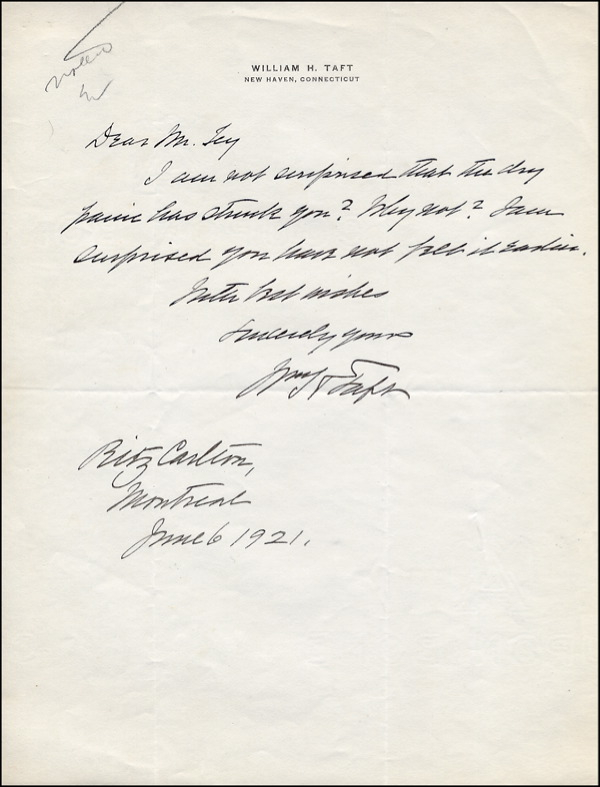 WILLIAM H. TAFT
NEW HAVEN, CONNECTICUT
Dear Mr.
I am not surprised that the dry
panic has struck you? Why not? I am
surprised you have not felt it earlier.
With best wishes
Sincerely yours
Wm H Taft
Ritz Carlton,
Montreal
June 6 1921.